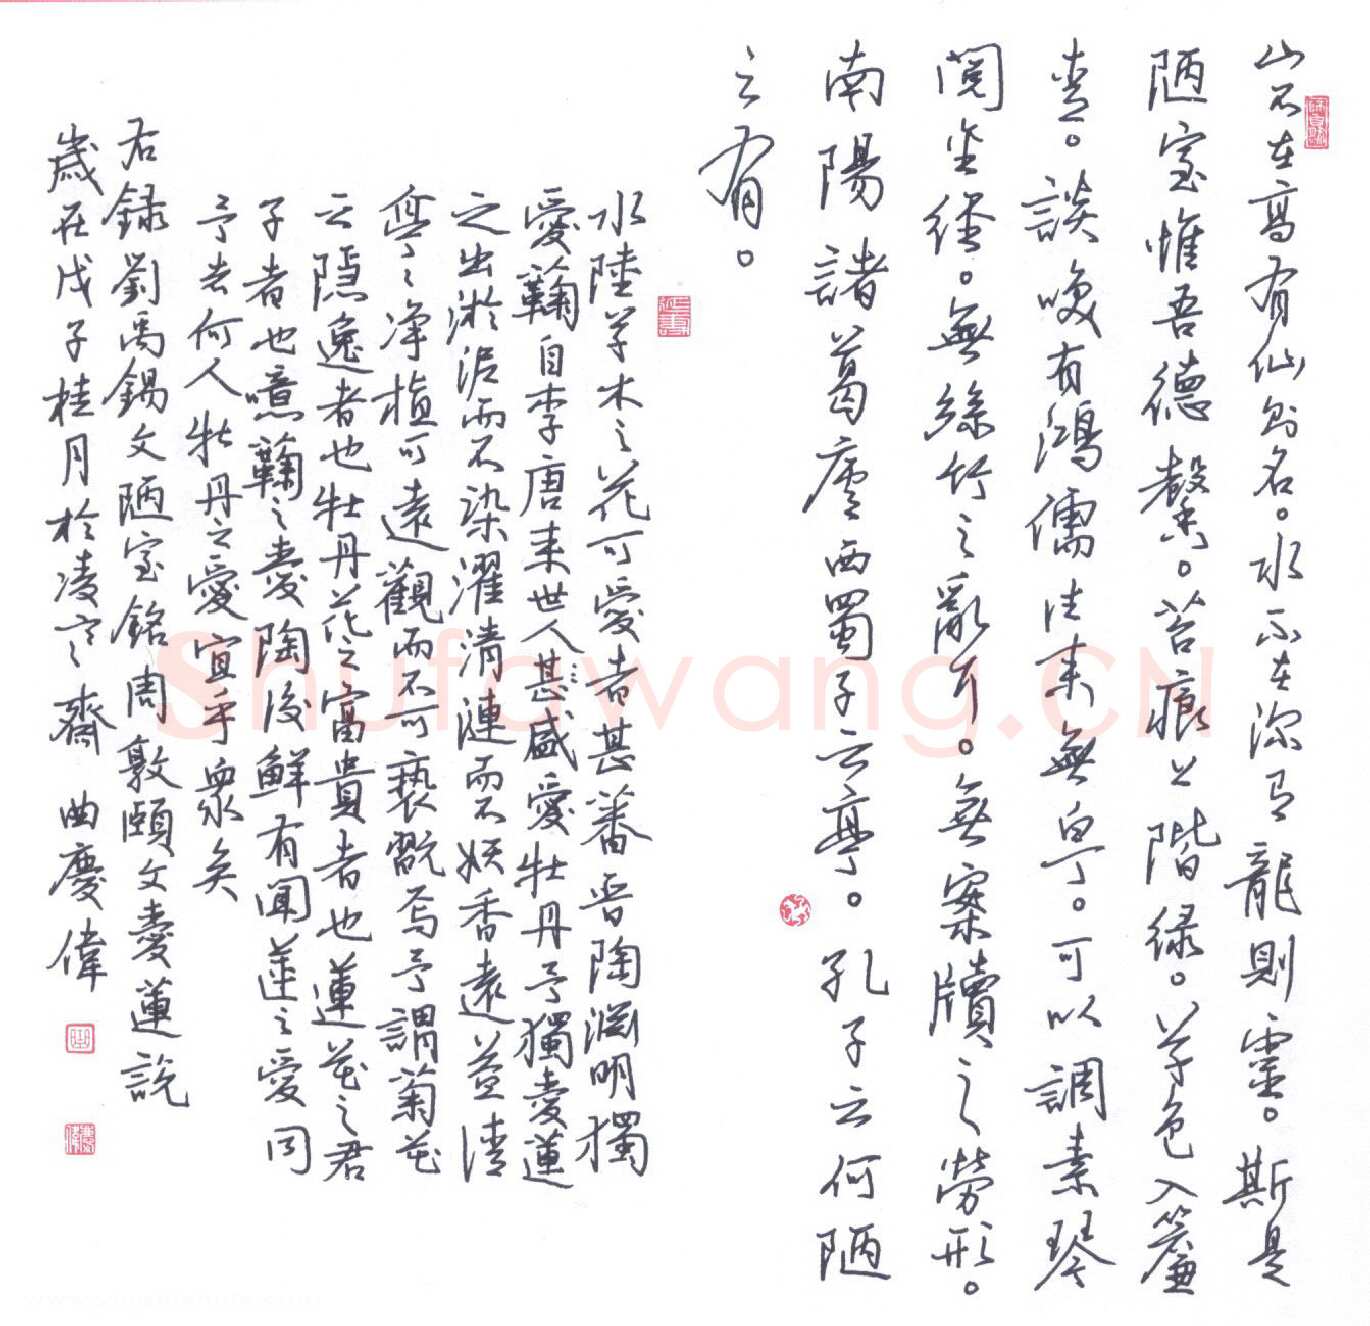 山不在高有仙則名。水不在深有龍則靈。斯是
陋室惟吾德馨。苔痕上階綠。草色入簾
青。談笑有鴻儒往來無白丁。可以調素琴
閱金經。無絲竹之亂耳。無案牘之勞形。
南陽諸葛廬西蜀子云亭。孔子云何陋
之有。
水陸草木之花可愛者甚蕃晉陶淵明獨
愛鞠自李唐來世人甚盛愛牡丹予獨愛蓮
之出淤泥而不染濯清漣而不妖香遠益清
亭〻淨植可遠觀而不可褻翫焉予謂菊花
之隱逸者也牡丹花之富貴者也蓮花之君
子者也噫鞠之愛陶後鮮有聞蓮之愛同
予者何人牡丹之愛宜乎眾矣
右錄劉禹錫文陋室銘周敦頤文愛蓮說
歲在戊子桂月於凌寒齋 曲慶偉
Shufawang.CN